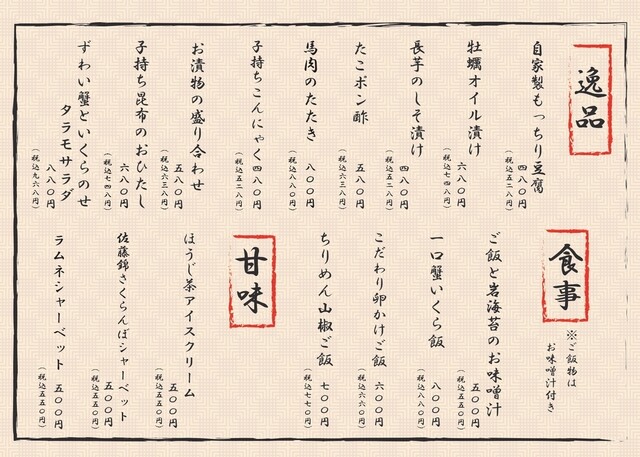 逸品
自家製もっちり豆腐
四八〇円
(税込五二八円)
牡蠣オイル漬け
六八〇円
(税込七四八円)
長芋のしそ漬け
四八〇円
(税込五二八円)
たこポン酢
五八〇円
(税込六三八円)
馬肉のたたき
八〇〇円
(税込八八〇円)
子持ちこんにゃく
四八〇円
(税込五二八円)
お漬物の盛り合わせ
五八〇円
(税込六三八円)
子持ち昆布のおひたし
六八〇円
(税込七四八円)
ずわい蟹といくらのせ
タラモサラダ
八八〇円
(税込九六八円)
食事
※ご飯物は
お味噌汁付き
ご飯と岩海苔のお味噌汁
五〇〇円
(税込五五〇円)
一口蟹いくら飯
八〇〇円
(税込八八〇円)
こだわり卵かけご飯
六〇〇円
(税込六六〇円)
ちりめん山椒ご飯
七〇〇円
(税込七七〇円)
甘味
ほうじ茶アイスクリーム
五〇〇円
(税込五五〇円)
佐藤錦さくらんぼシャーベット
五〇〇円
(税込五五〇円)
ラムネシャーベット
五〇〇円
(税込五五〇円)